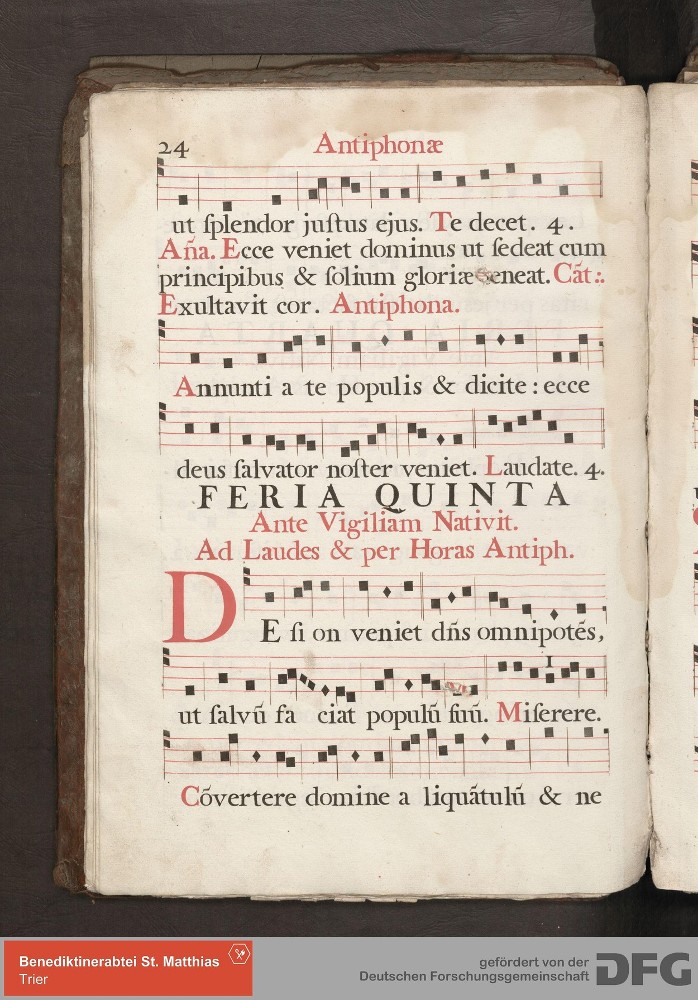 24 Antiphonæ
ut ſplendor juſtus ejus. Te decet. 4.
Aña. Ecce veniet dominus ut ſedeat cum
principibus & ſolium gloriæ teneat. Cãt:.
Exultavit cor. Antiphona.
Annunti a te populis & dicite: ecce
deus ſalvator noſter veniet. Laudate. 4.
FERIA QUINTA
Ante Vigiliam Nativit.
Ad Laudes & per Horas Antiph.
DE ſi on veniet dñs omnipotẽs,
ut ſalvũ fa ciat populũ ſuũ. Miſerere.
Cõvertere domine a liquãtulũ & ne
Benediktinerabtei St. Matthias
Trier
gefördert von der
Deutschen Forschungsgemeinschaft
DFG